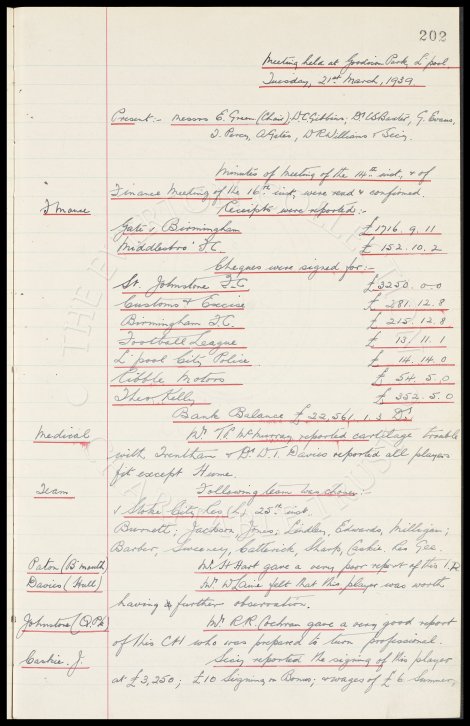 202
Meeting held at Goodison Park, L'pool
Tuesday, 21st March, 1939.
Present:- Messrs E. Green (Chair), W.C. Gibbins, Dr C.S. Baxter, G. Evans,
T. Percy, A. Gates, W.R. Williams & Secy.
Minutes of Meeting of the 14th inst, & of
Finance Meeting of the 16th inst, were read & confirmed.
Finance Receipts were reported:-
Gate v Birmingham £1716. 9. 11
Middlesbro' F.C. £152. 10. 2
Cheques were signed for:-
St. Johnstone F.C. £3250. 0. 0
Customs & Excise £281. 12. 8
Birmingham F.C. £215. 12. 8
Football League £13. 11. 1
L'pool City Police £14. 14. 0
Ribble Motors £54. 5. 0
Theo. Kelly £352. 5. 0
Bank Balance £22,561. 1. 3 Dr
Medical Mr Th. McMurray reported cartilage trouble
with Trentham & Dr W.I. Davies reported all players
fit except Hume.
Team Following team was chosen:-
v Stoke City Res (h) 25th inst.
Burnett; Jackson, Jones; Lindley, Edwards, Milligan;
Barber, Sweeney, Catterick, Sharp, Caskie. Res Gee.
Paton (B'mouth) Mr H. Hart gave a very poor report of this
Davies (Hull) Mr W. Laine felt that this player was worth
having further observation.
Johnston (Q.Pk) Mr R.R. Cochran gave a very good report
of this CH who was prepared to turn professional.
Caskie. J. Secy reported the signing of this player
at £3,250; £10 Signing on Bonus; & wages of £6 Summer,